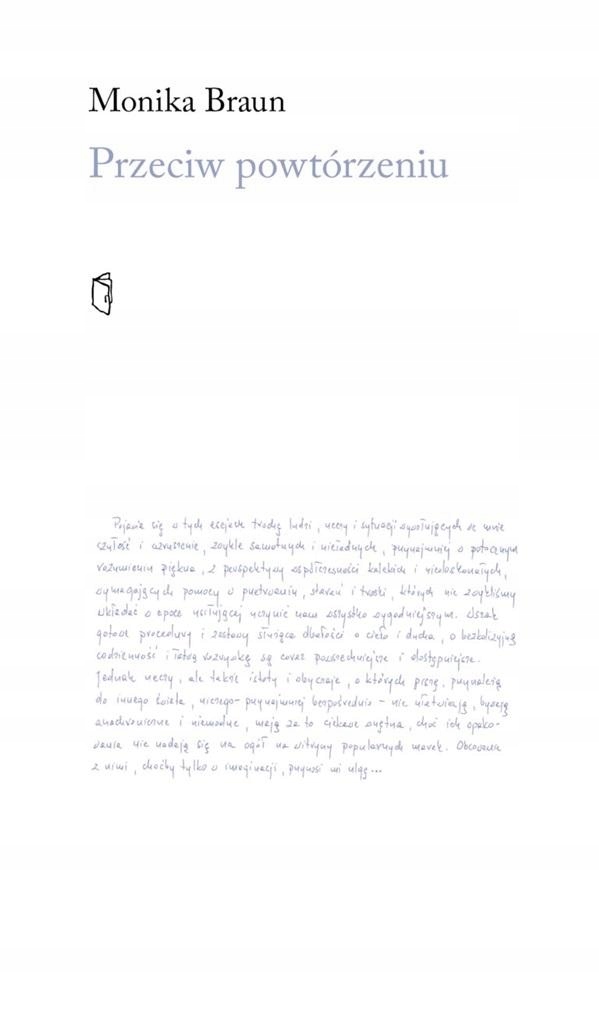 Monika Braun
Przeciw powtórzeniu
Pojawia się w tych esejach trochę ludzi, rzeczy i sytuacji wywołujących we mnie
czułość i wzruszenie, zwykle samotnych i nieładnych, przynajmniej w potocznym
rozumieniu piękna, z perspektywy współczesności kalekich i niedoskonałych,
wymagających pomocy w przetrwaniu, starań i troski, których nie zwykliśmy
wkładać w epoce usiłującej uczynić nam wszystko wygodniejszym. Wszak
gotowe procedury i zestawy służące dbałości o ciało i ducha, o bezkolizyjną
codzienność i łatwą rozrywkę są coraz powszechniejsze i dostępniejsze.
Jednak rzeczy, ale także istoty i obyczaje, o których piszę, przynależą
do innego świata, niczego – przynajmniej bezpośrednio – nie ułatwiają, bywają
anachroniczne i niemodne, mają za to ciekawe wnętrza, choć ich opako-
wania nie nadają się na ogół na witryny popularnych marek. Obcowanie
z nimi, choćby tylko w imaginacji, przynosi mi ulgę...